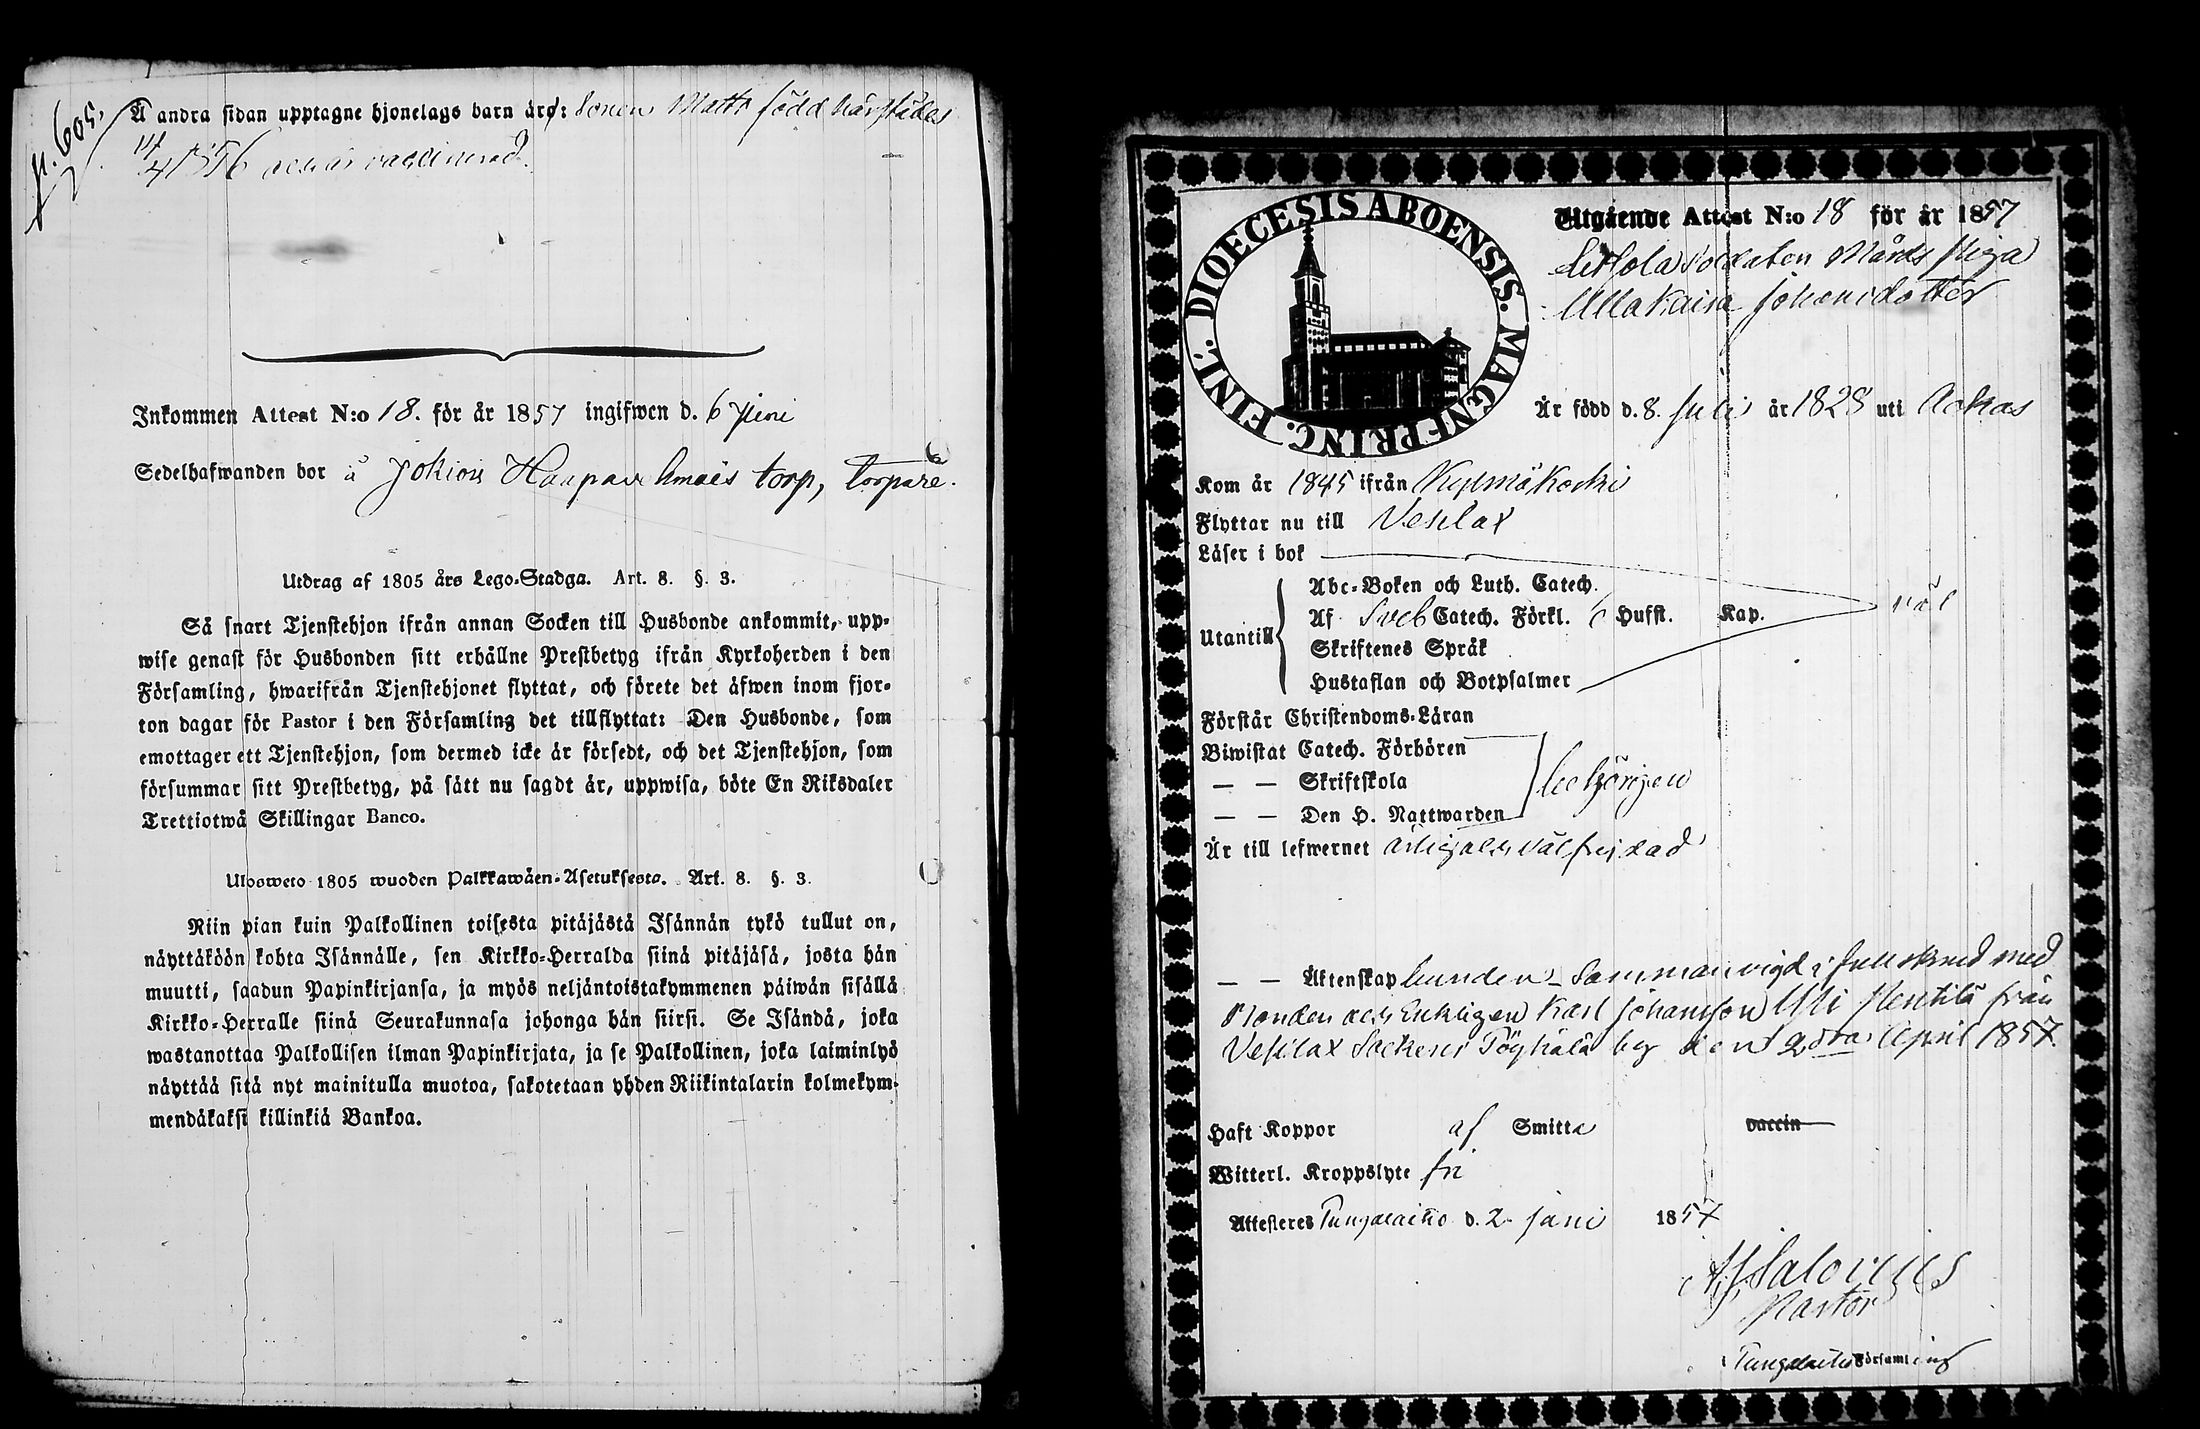 p. 605.
Å andra sidan upptagne hjonelags barn äro: Sonen Matts född härstädes
14/4 1856 och är vaccinerad.
Inkommen Attest N:o 18. för år 1857 ingifwen d. 6 Juni
Sedelhafwanden bor å Jokiois torp, torpare.
Utdrag af 1805 års Lego-Stadga. Art. 8. §. 3.
Så snart Tjenstehjon ifrån annan Socken till Husbonde ankommit, upp-
wise genast för Husbonden sitt erhållne Prestbetyg ifrån Kyrkoherden i den
Församling, hwarifrån Tjenstehjonet flyttat, och förete det äfwen inom fjor-
ton dagar för Pastor i den Församling det tillflyttat: Den Husbonde, som
emottager ett Tjenstehjon, som dermed icke är försedt, och det Tjenstehjon, som
försummar sitt Prestbetyg, på sätt nu sagdt är, uppwisa, böte En Riksdaler
Trettiotwå Skillingar Banco.
Ulosweto 1805 wuoden Palkkawäen-Asetuksesta. Art. 8. §. 3.
Niin pian kuin Palkollinen toisesta pitäjästä Isännän tykö tullut on,
näyttäköön kohta Isännälle, sen Kirkko-Herralda siinä pitäjäsä, josta hän
muutti, saadun Papinkirjansa, ja myös neljäntoistakymmenen päiwän sisällä
Kirkko-Herralle siinä Seurakunnasa johonga hän siirsi. Se Isändä, joka
wastanottaa Palkollisen ilman Papinkirjata, ja se Palkollinen, joka laiminlyö
näyttää sitä nyt mainitulla muotoa, sakotetaan yhden Riikintalarin kolmekym-
mendäkaksi killinkiä Bankoa.
DIOECESIS ABOENSIS. MAGNI PRINC. FINL.
Utgående Attest N:o 18 för år 1857
Soldaten Mårds Piga
Ulla Kaisa Johansdotter
Är född d. 8. Juli år 1828 uti Achas
Kom år 1845 ifrån Kylmäkoski
Flyttar nu till Vesilax
Läser i bok
Abc-Boken och Luth. Catech.
Utantill Af Sveb Catech. Förkl. 6 Hufst. Kap. väl
Skriftenes Språk
Hustaflan och Botpsalmer
Förstår Christendoms-Läran
Biwistat Catech. Förhören
— — Skriftskola behörigen
— — Den H. Nattwarden
Är till lefwernet ärlig och välfrejdad
— — Äktenskap bunden – Sammanvigd i med
Bonden och Enklingen Karl Johansson Uli Penttilä från
Vesilax Sockens by den 2dra April 1857.
Haft Koppor af Smitta vaccin
Witterl. Kroppslyte fri
Attesteres Pungalaitio d. 2 juni 1857
Salovius
Pastor
i Pungalaitio Församling